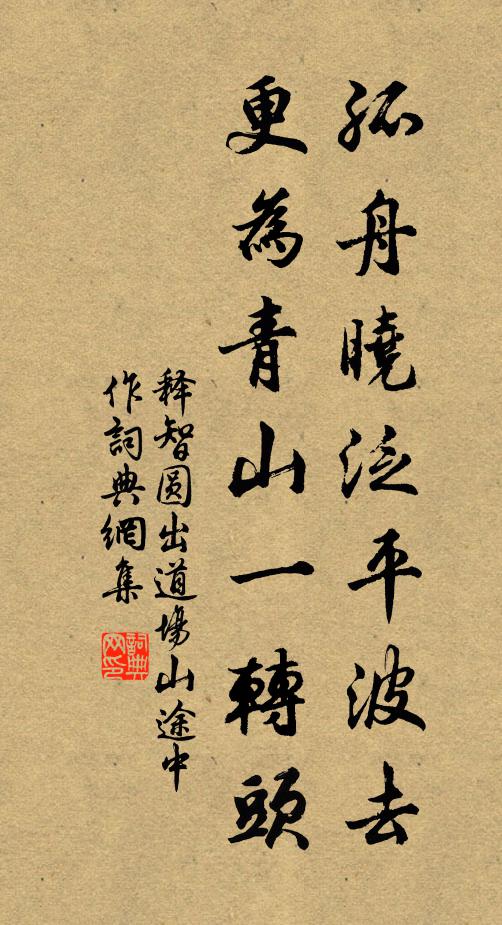 孤舟曉泛平波去
更為青山一轉頭
释智圆出道場山途中
作詞典網集
詞典网印